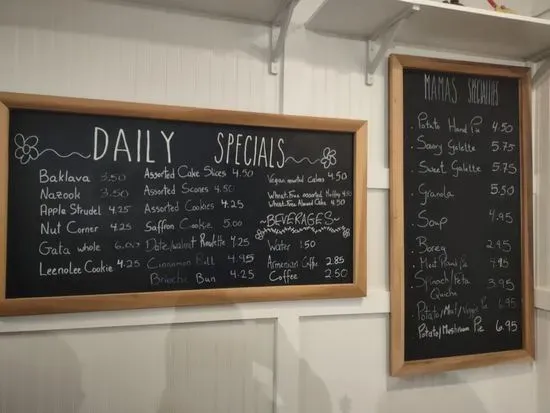 DAILY SPECIALS
Baklava 3.50
Nazook 3.50
Apple Strudel 4.25
Nut Corner 4.25
Gata whole 6.00
Leenolee Cookie 4.25
Assorted Cake Slices 4.50
Assorted Scones 4.50
Assorted Cookies 4.25
Saffron Cookie 5.00
Date/walnut Roulette 4.25
Cinnamon Roll 4.95
Brioche Bun 4.25
Vegan assorted cakes 4.50
Wheat-Free assorted 4.50
Wheat-Free Almond Cake 4.50
~BEVERAGES~
Water 1.50
Armenian Coffee 2.85
Coffee 2.50
MAMAS SPECIALTIES
. Potato Hand Pie 4.50
. Savory Galette 5.75
. Sweet Galette 5.75
. Granola 5.50
. Soup 4.95
. Boreg 2.45
. Meat Round Pie 4.95
. Spinach/Feta Quiche 3.95
. Potato/Meat/Veggie Pie 6.95
. Potato/Mushroom Pie 6.95